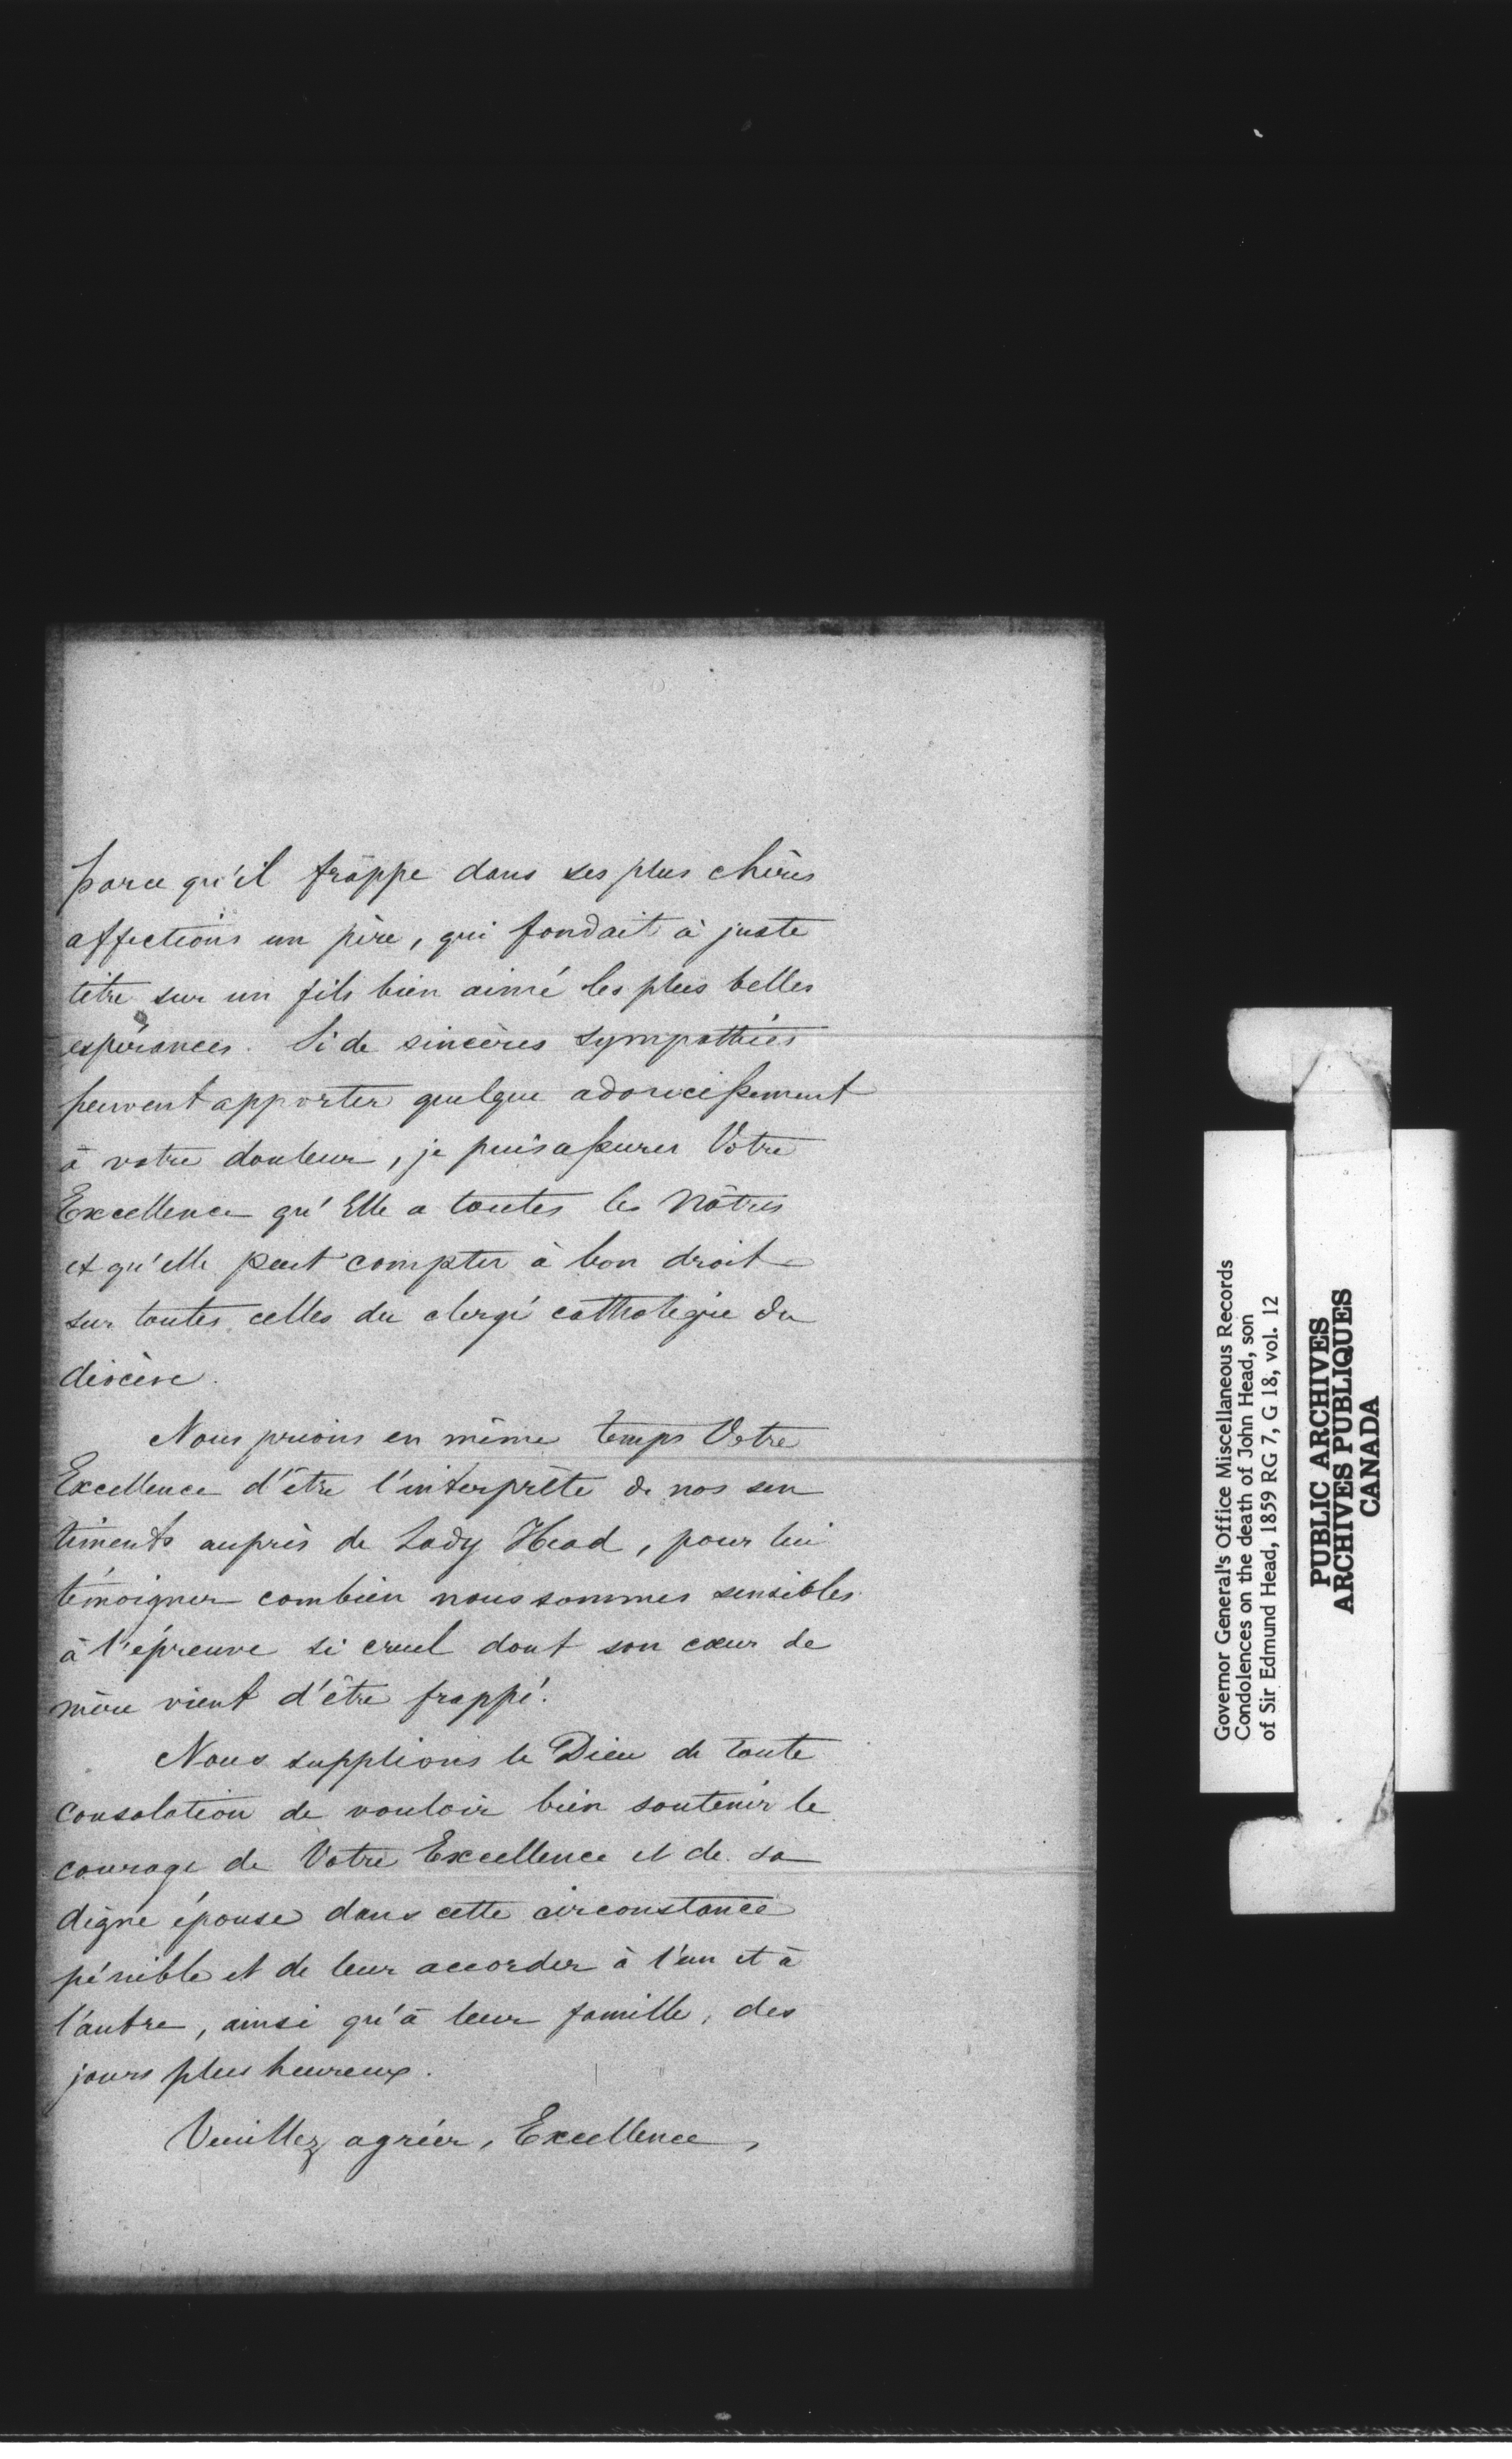 parce qu'il frappe dans ses plus chères
affections un père, qui fondait à juste
titre sur un fils bien aimé les plus belles
espérances. Si de sincères sympathies
peuvent apporter quelque adoucissement
à votre douleur, je puis assurer Votre
Excellence qu'Elle a toutes les Nôtres
et qu'elle peut compter à bon droit
sur toutes celles du clergé catholique du
diocèse.
Nous prions en même temps Votre
Excellence d'être l'interprète de nos sen
timents auprès de Lady Head, pour lui
témoigner combien nous sommes sensibles
à l'épreuve si cruel dont son cœur de
mère vient d'être frappé.
Nous supplions le Dieu de toute
consolation de vouloir bien soutenir le
courage de Votre Excellence et de sa
digne épouse dans cette circonstance
pénible et de leur accorder à l'un et à
l'autre, ainsi qu'à leur famille, des
jours plus heureux.
Veuillez agréer, Excellence,
Governor General's Office Miscellaneous Records
Condolences on the death of John Head, son
of Sir Edmund Head, 1859 RG 7, G 18, vol. 12
PUBLIC ARCHIVES
ARCHIVES PUBLIQUES
CANADA